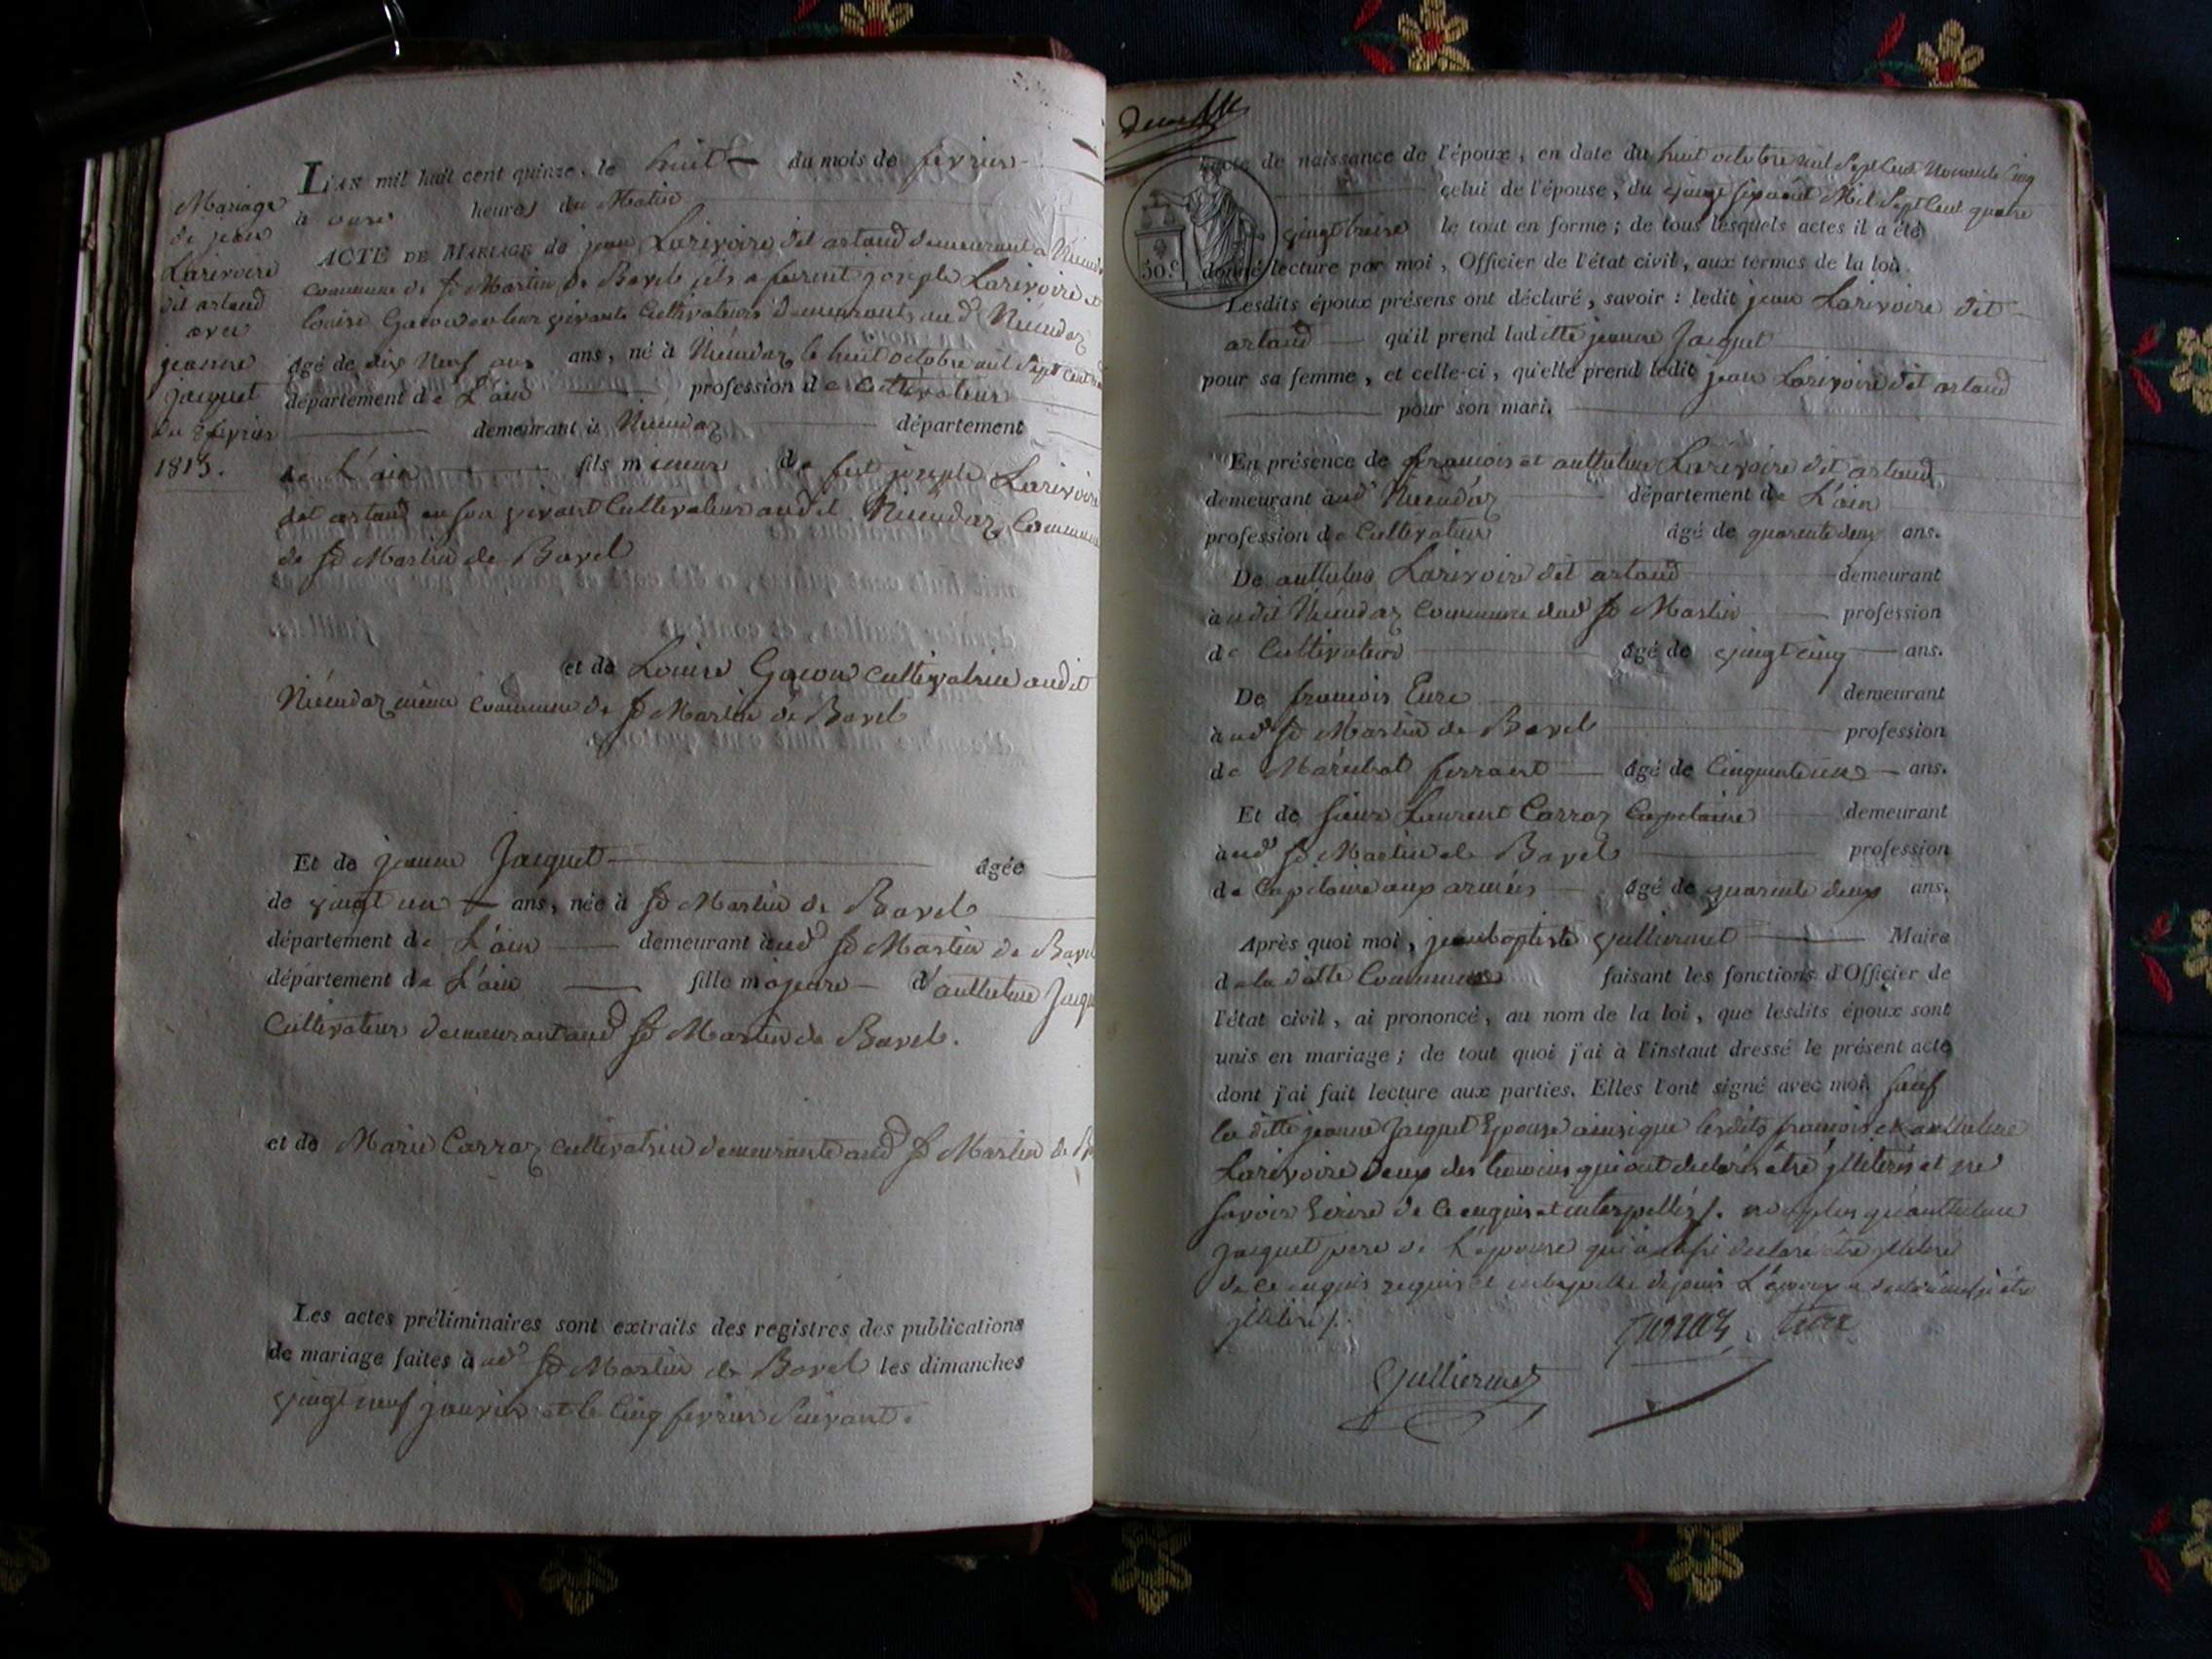 Mariage
de jean
Larivoire
dit artaud
avec
jeanne
jacquet
du 8 février
1815.
L'AN mil huit cent quinze, le huit du mois de février
à onze heures du Matin
ACTE DE MARIAGE de jean Larivoire dit artaud demeurant à
Commune de St Martin de Bavel fils a furent joseph Larivoire et
louise Gacon vivants Cultivateurs demeurants aud
âgé de dix Neuf ans ans, né à le huit octobre mil Sept Cent
département de L'ain profession de Cultivateur
demeurant à département
de L'ain fils mineur de feu joseph Larivoire
dit artaud en son vivant Cultivateur audit Commune
de St Martin de Bavel
et de Louise Gacon Cultivatrice audit
même Commune de St Martin de Bavel
Et de jeanne Jacquet âgée
de vingt un ans, née à St Martin de Bavel
département de L'ain demeurant aud St Martin de Bavel
département de L'ain fille majeure d'anthelme Jacqu
Cultivateur demeurant aud St Martin de Bavel.
et de Marie Carraz Cultivatrice demeurante aud St Martin de B
Les actes préliminaires sont extraits des registres des publications
de mariage faites à aud St Martin de Bavel les dimanches
vingt neuf janvier et le Cinq fevrier Suivant.
30.c
acte de naissance de l'époux, en date du huit octobre mil Sept Cent Nonante Cinq
celui de l'épouse, du août Mil Sept Cent quatre
vingt treize le tout en forme; de tous lesquels actes il a été
donné lecture par moi, Officier de l'état civil, aux termes de la loi.
Lesdits époux présens ont déclaré, savoir: ledit jean Larivoire dit
artaud qu'il prend laditte jeanne Jacquet
pour sa femme, et celle-ci, qu'elle prend ledit jean Larivoire dit artaud
pour son mari.
En présence de françois et anthelme Larivoire dit artaud
demeurant aud département de L'ain
profession de Cultivateur âgé de quarente deux ans.
De anthelme Larivoire dit artaud demeurant
audit Commune dud St Martin profession
de Cultivateur âgé de vingt cinq ans.
De françois demeurant
aud St Martin de Bavel profession
de Maréchal ferrant âgé de Cinquante un ans.
Et de sieur Laurent Carraz Capitaine demeurant
aud St Martin de Bavel profession
de Capitaine aux armées âgé de quarente deux ans.
Après quoi moi, jean baptiste Maire
de la ditte Commune faisant les fonctions d'Officier de
l'état civil, ai prononcé, au nom de la loi, que lesdits époux sont
unis en mariage; de tout quoi j'ai à l'instant dressé le présent acte
dont j'ai fait lecture aux parties. Elles l'ont signé avec moi sauf
la ditte jeanne Jacquet Epouse ainsique lesdits françois et anthelme
Larivoire deux des temoins qui ont declarés être jlleterés et ne
savoir Ecrire de ce enquis et interpellés /. non plus qu'anthelme
jacquet pere de L'épouse qui a aussi declaré être jlletere
de ce enquis requis et interpellé depuis L'époux a declaré aussi être
jlleteré /.